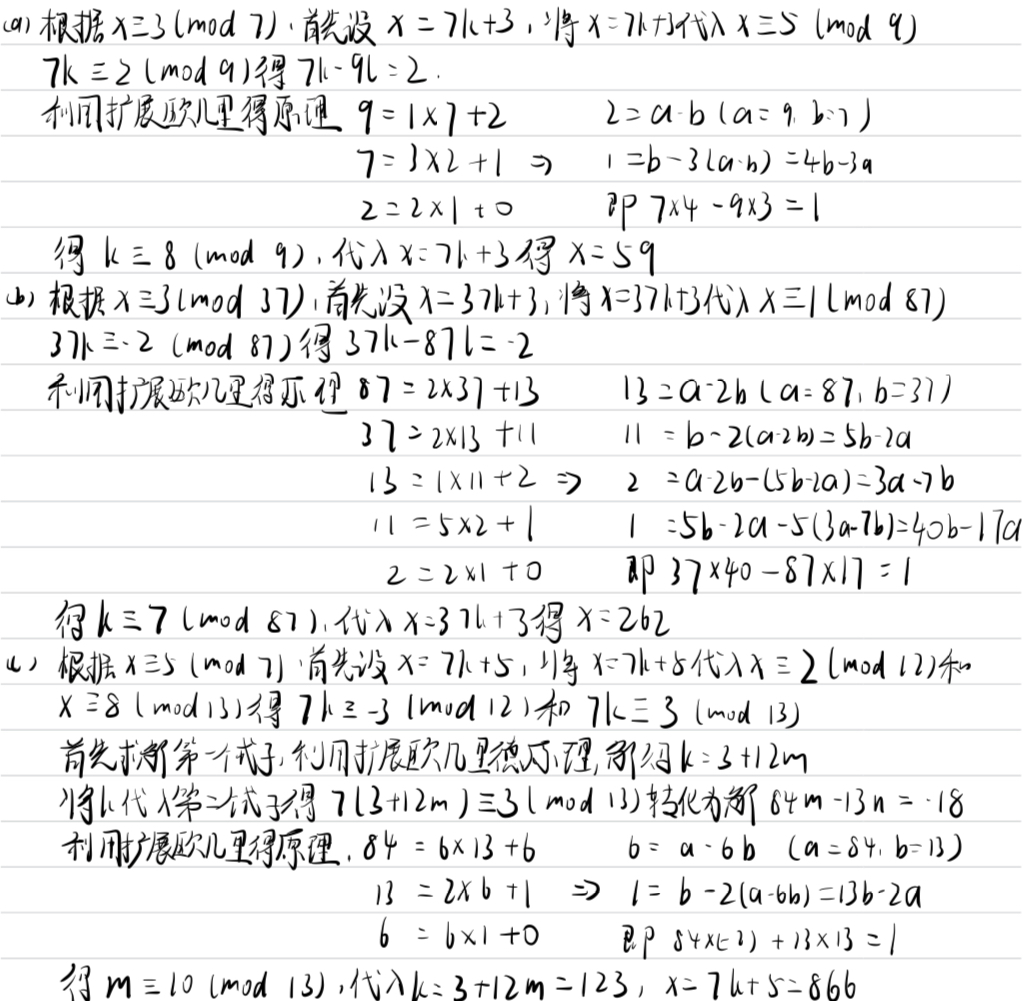 (a) 根据 x≡3 (mod 7),首先设 x = 7k+3,将 x=7k+3代入 x≡5 (mod 9)
7k ≡ 2 (mod 9) 得 7k-9l = 2.
利用扩展欧几里得原理 9 = 1×7+2 2 = a-b (a=9, b=7)
7 = 3×2+1 ⇒ 1 = b-3(a-b) = 4b-3a
2 = 2×1+0 即 7×4 - 9×3 = 1
得 k ≡ 8 (mod 9),代入 x=7k+3 得 x=59
(b) 根据 x≡3 (mod 37),首先设 x=37k+3,将 x=37k+3代入 x≡1 (mod 87)
37k ≡ -2 (mod 87) 得 37k-87l = -2
利用扩展欧几里得原理 87 = 2×37+13 13 = a-2b (a=87, b=37)
37 = 2×13+11 11 = b-2(a-2b) = 5b-2a
13 = 1×11+2 ⇒ 2 = a-2b-(5b-2a) = 3a-7b
11 = 5×2+1 1 = 5b-2a-5(3a-7b) = 40b-17a
2 = 2×1+0 即 37×40-87×17 = 1
得 k≡7 (mod 87),代入 x=37k+3得 x=262
(c) 根据 x≡5 (mod 7) 首先设 x=7k+5,将 x=7k+5代入 x≡2 (mod 12)和
x≡8 (mod 13)得 7k≡-3 (mod 12)和 7k≡3 (mod 13)
首先求解第一个式子,利用扩展欧几里德原理,解得 k=3+12m
将k代入第二个式子得 7(3+12m)≡3 (mod 13)转化为解 84m-13n = -18
利用扩展欧几里得原理,84 = 6×13+6 6 = a-6b (a=84, b=13)
13 = 2×6+1 ⇒ 1 = b-2(a-6b) = 13b-2a
6 = 6×1+0 即 84×(-2)+13×13 = 1
得 m≡10 (mod 13),代入k=3+12m=123, x=7k+5=866